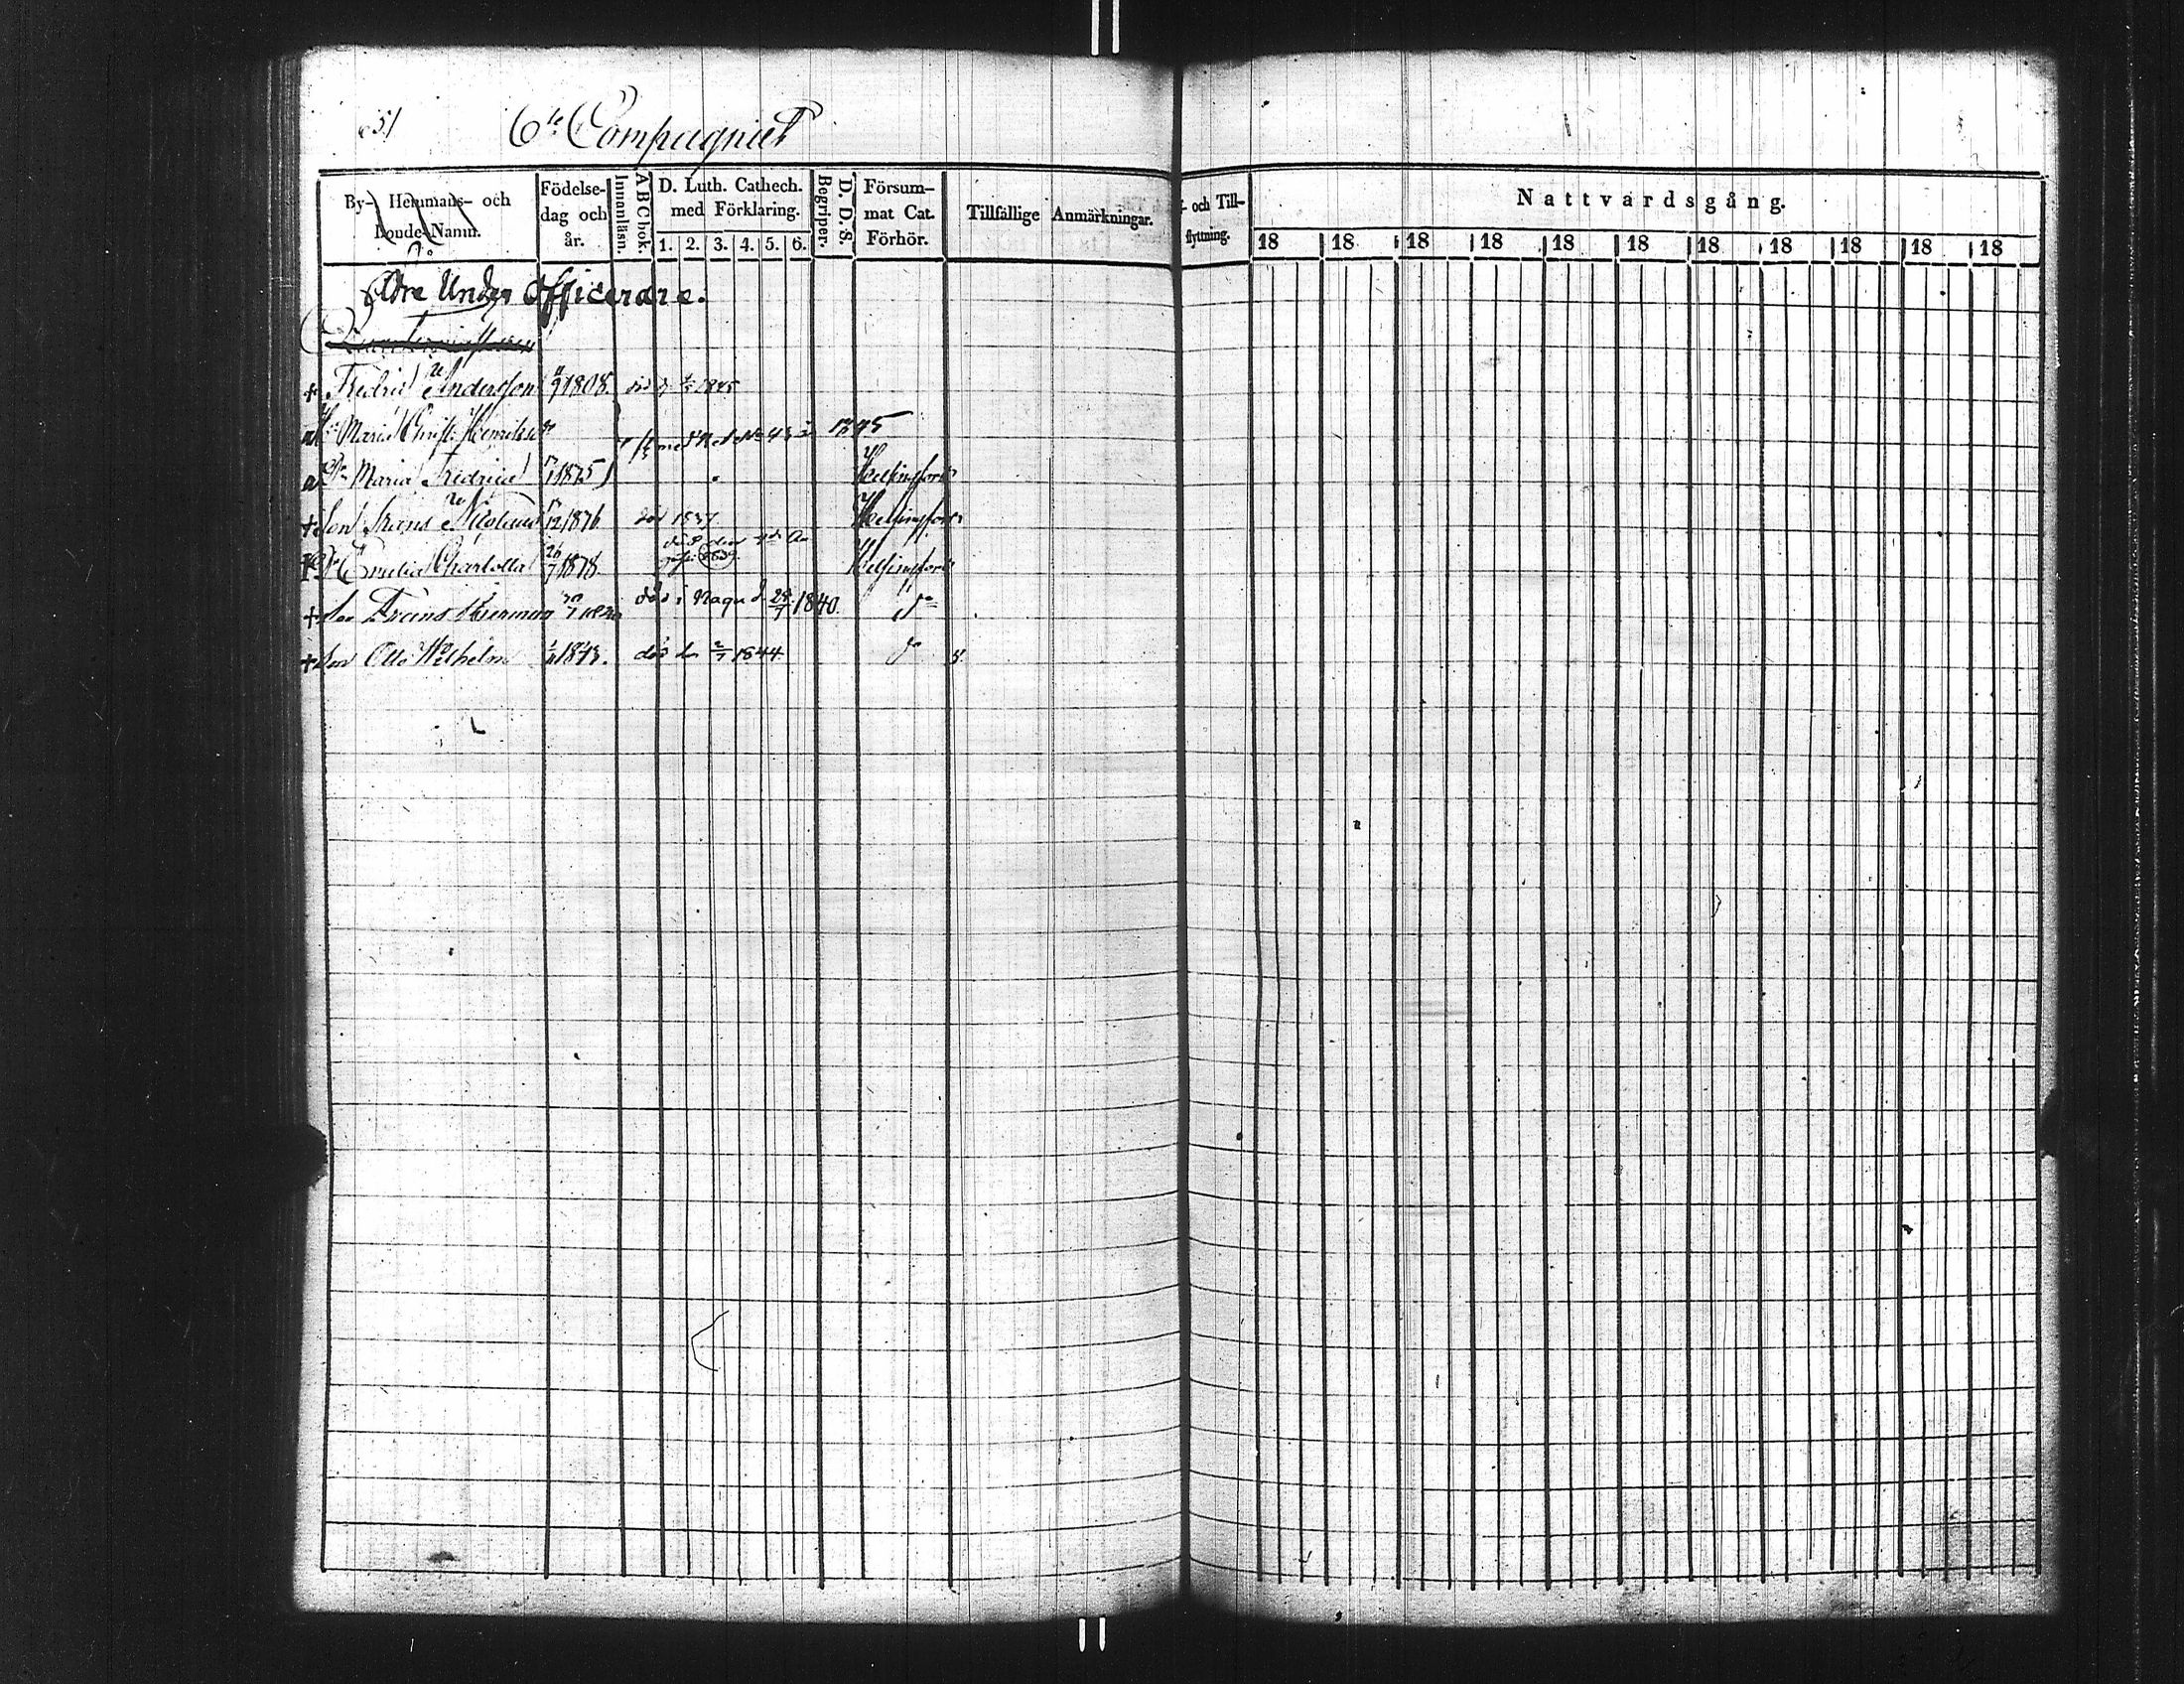 51
6te Compagniet
By- Hemmans- och Bonde-Namn.
Födelse-dag och år.
Innanläsn.
ABCbok.
D. Luth. Cathech. med Förklaring.
1. 2. 3. 4. 5. 6.
Begriper.
D. D. S.
Försum-mat Cat. Förhör.
Tillfällige Anmärkningar.
- och Till-flyttning.
Nattvardsgång.
18 18 18 18 18 18 18 18 18 18 18
Äldre Under Officerare.
+ Fredric Andersson 1808. död 1845
Maria Christ. Henriksd:r 1845
D:r Maria Fredrica Helsingfors
+ Son Frans Nicolaus död 1837 Helsingfors
D:r Emelia Charlotta 26/7 död den 1839 Helsingfors
+ Son Frans Herman död i Nagu d. 28/7 1840. do
+ Son Otto Wilhelm 1843. död den 2/7 1844 do